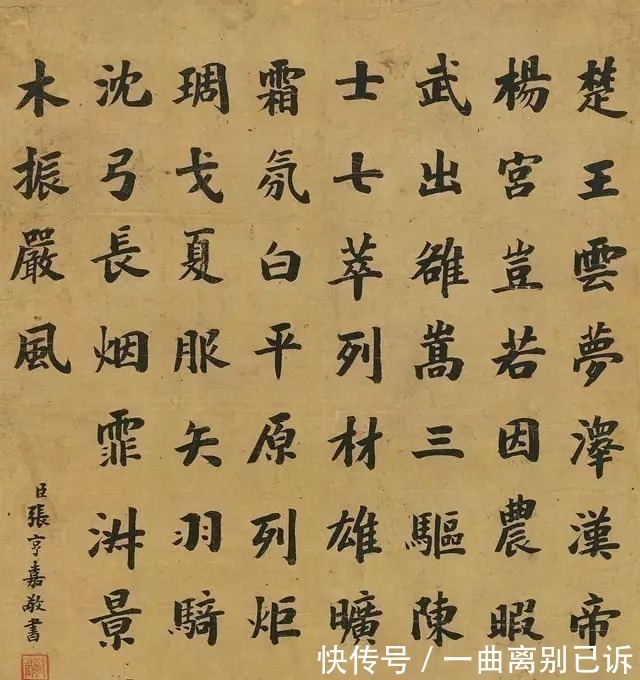 楚王雲夢澤漢帝
楊宮豈若因農暇
武出雒嵩三驅陳
士七萃列材雄曠
霜氛白平原列炬
琱戈夏服矢羽騎
沈弓長烟霏景
木振嚴風
臣張亨嘉敬書
快传号/一曲离别已诉